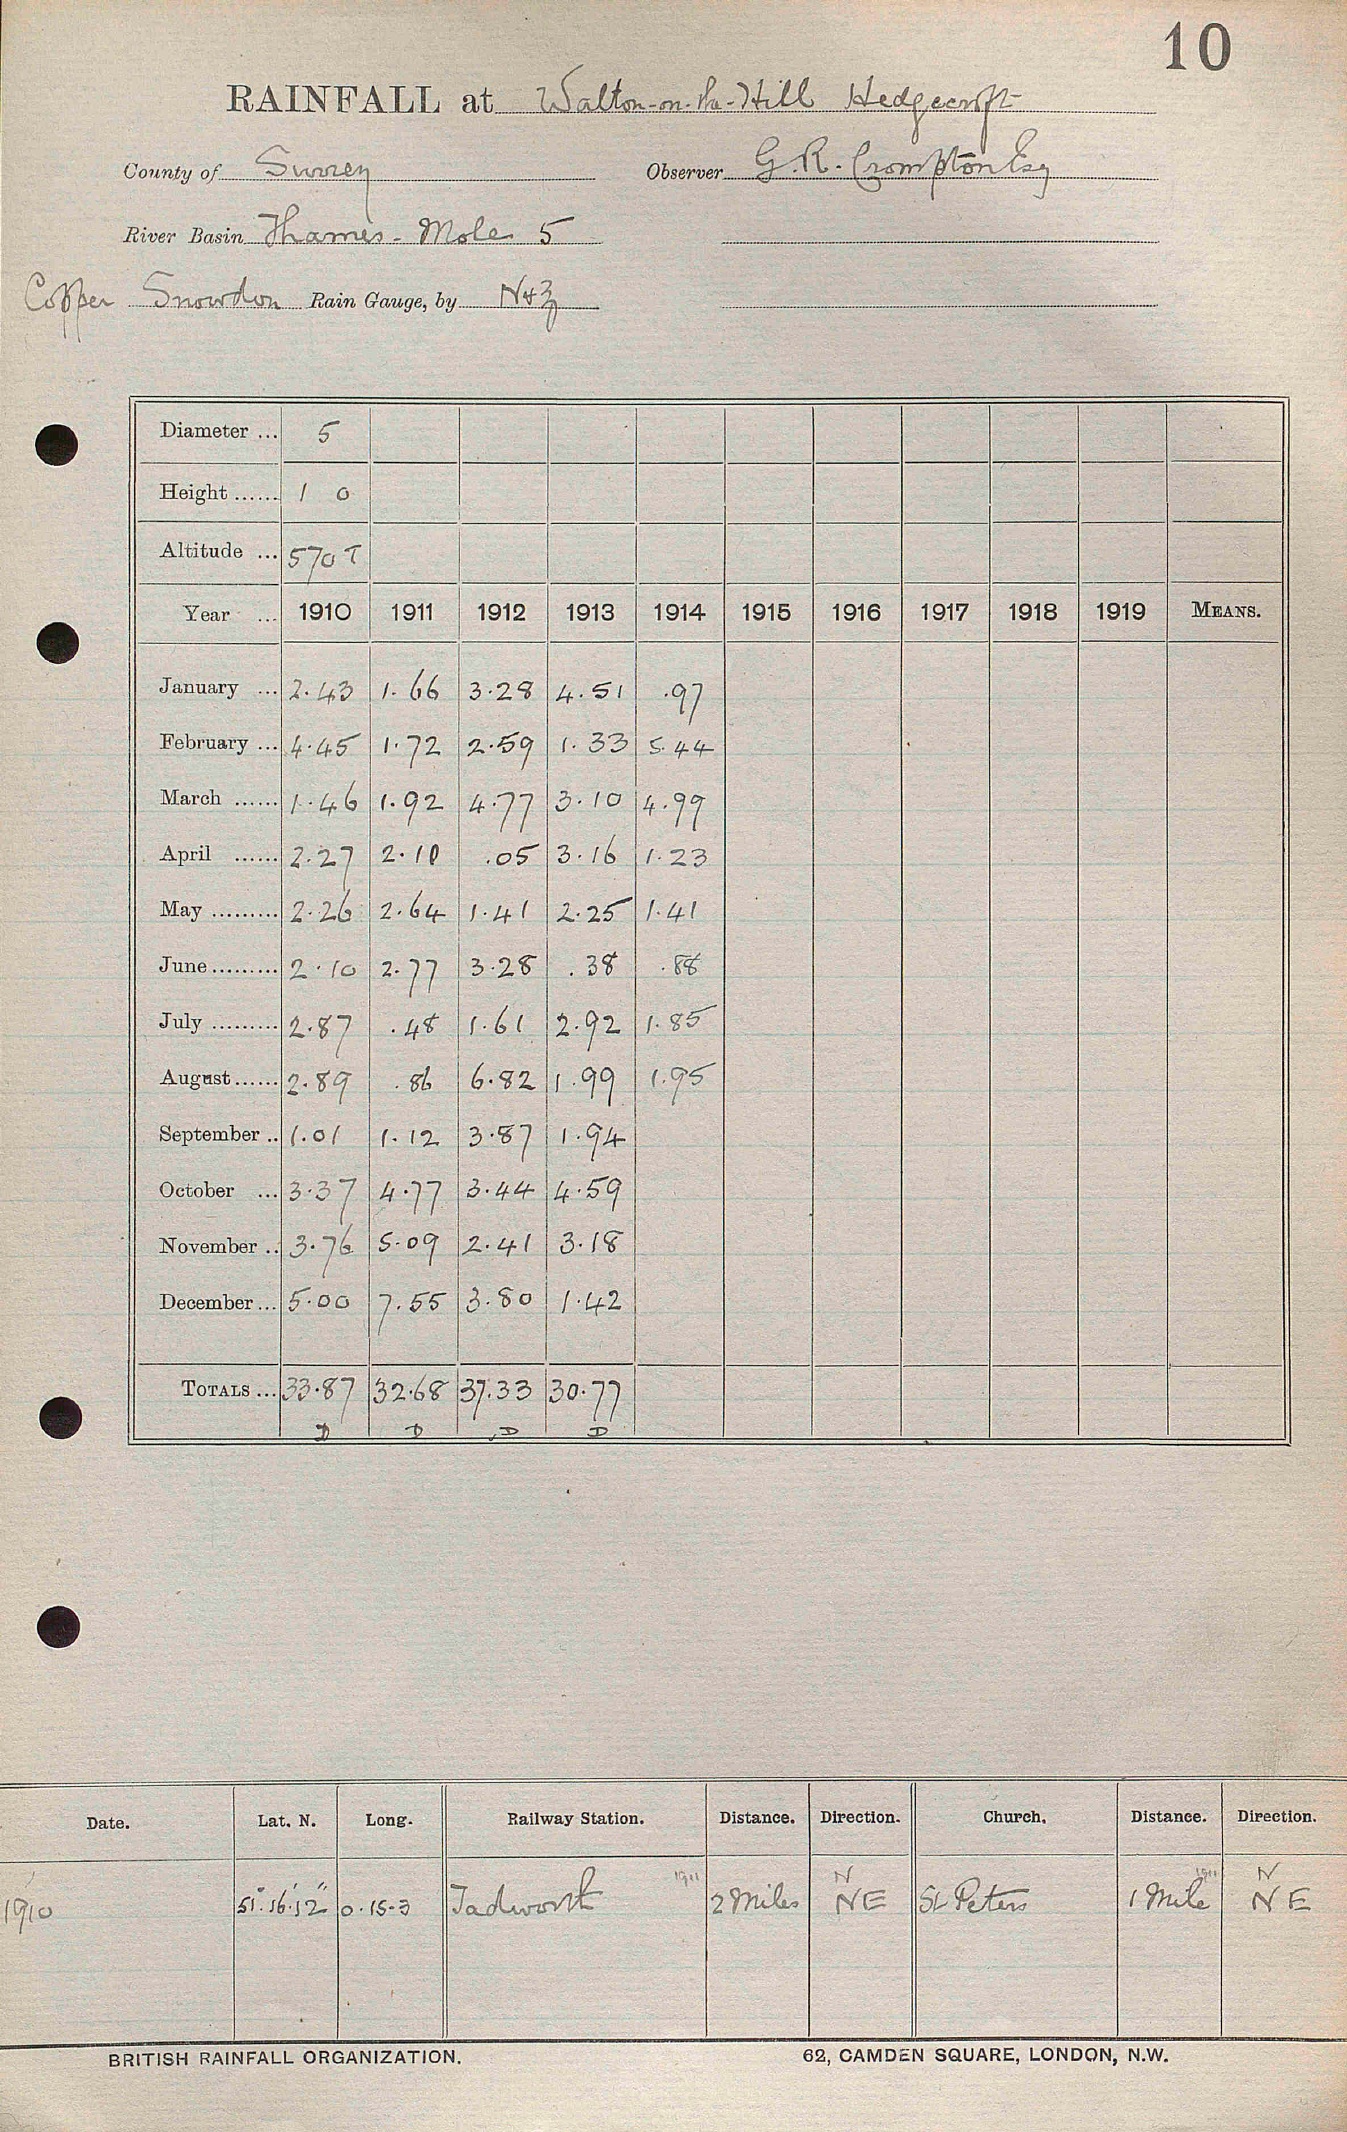 10
RAINFALL at Walton-on-the-Hill Hedgecroft
County of Surrey Observer G. R. Crompton Esq
River Basin Thames - Mole 5
Copper Snowdon Rain Gauge, by N&Z
Diameter ... 5
Height ...... 1 0
Altitude ... 570 T
Year ... 1910 1911 1912 1913 1914 1915 1916 1917 1918 1919 MEANS.
January ... 2.43 1.66 3.28 4.51 .97
February ... 4.45 1.72 2.59 1.33 5.44
March ...... 1.46 1.92 4.77 3.10 4.99
April ...... 2.27 2.10 .05 3.16 1.23
May ......... 2.26 2.64 1.41 2.25 1.41
June ......... 2.10 2.77 3.28 .38 .88
July ......... 2.87 .48 1.61 2.92 1.85
August ...... 2.89 .86 6.82 1.99 1.95
September .. 1.01 1.12 3.87 1.94
October ... 3.37 4.77 3.44 4.59
November .. 3.76 5.09 2.41 3.18
December ... 5.00 7.55 3.80 1.42
TOTALS ... 33.87 32.68 37.33 30.77
D D D D
Date. Lat. N. Long. Railway Station. Distance. Direction. Church. Distance. Direction.
1911 N 1911 N
1910 51°.16'.12" 0.15.3 Tadworth 2 Miles NE St Peters 1 Mile NE
BRITISH RAINFALL ORGANIZATION. 62, CAMDEN SQUARE, LONDON, N.W.